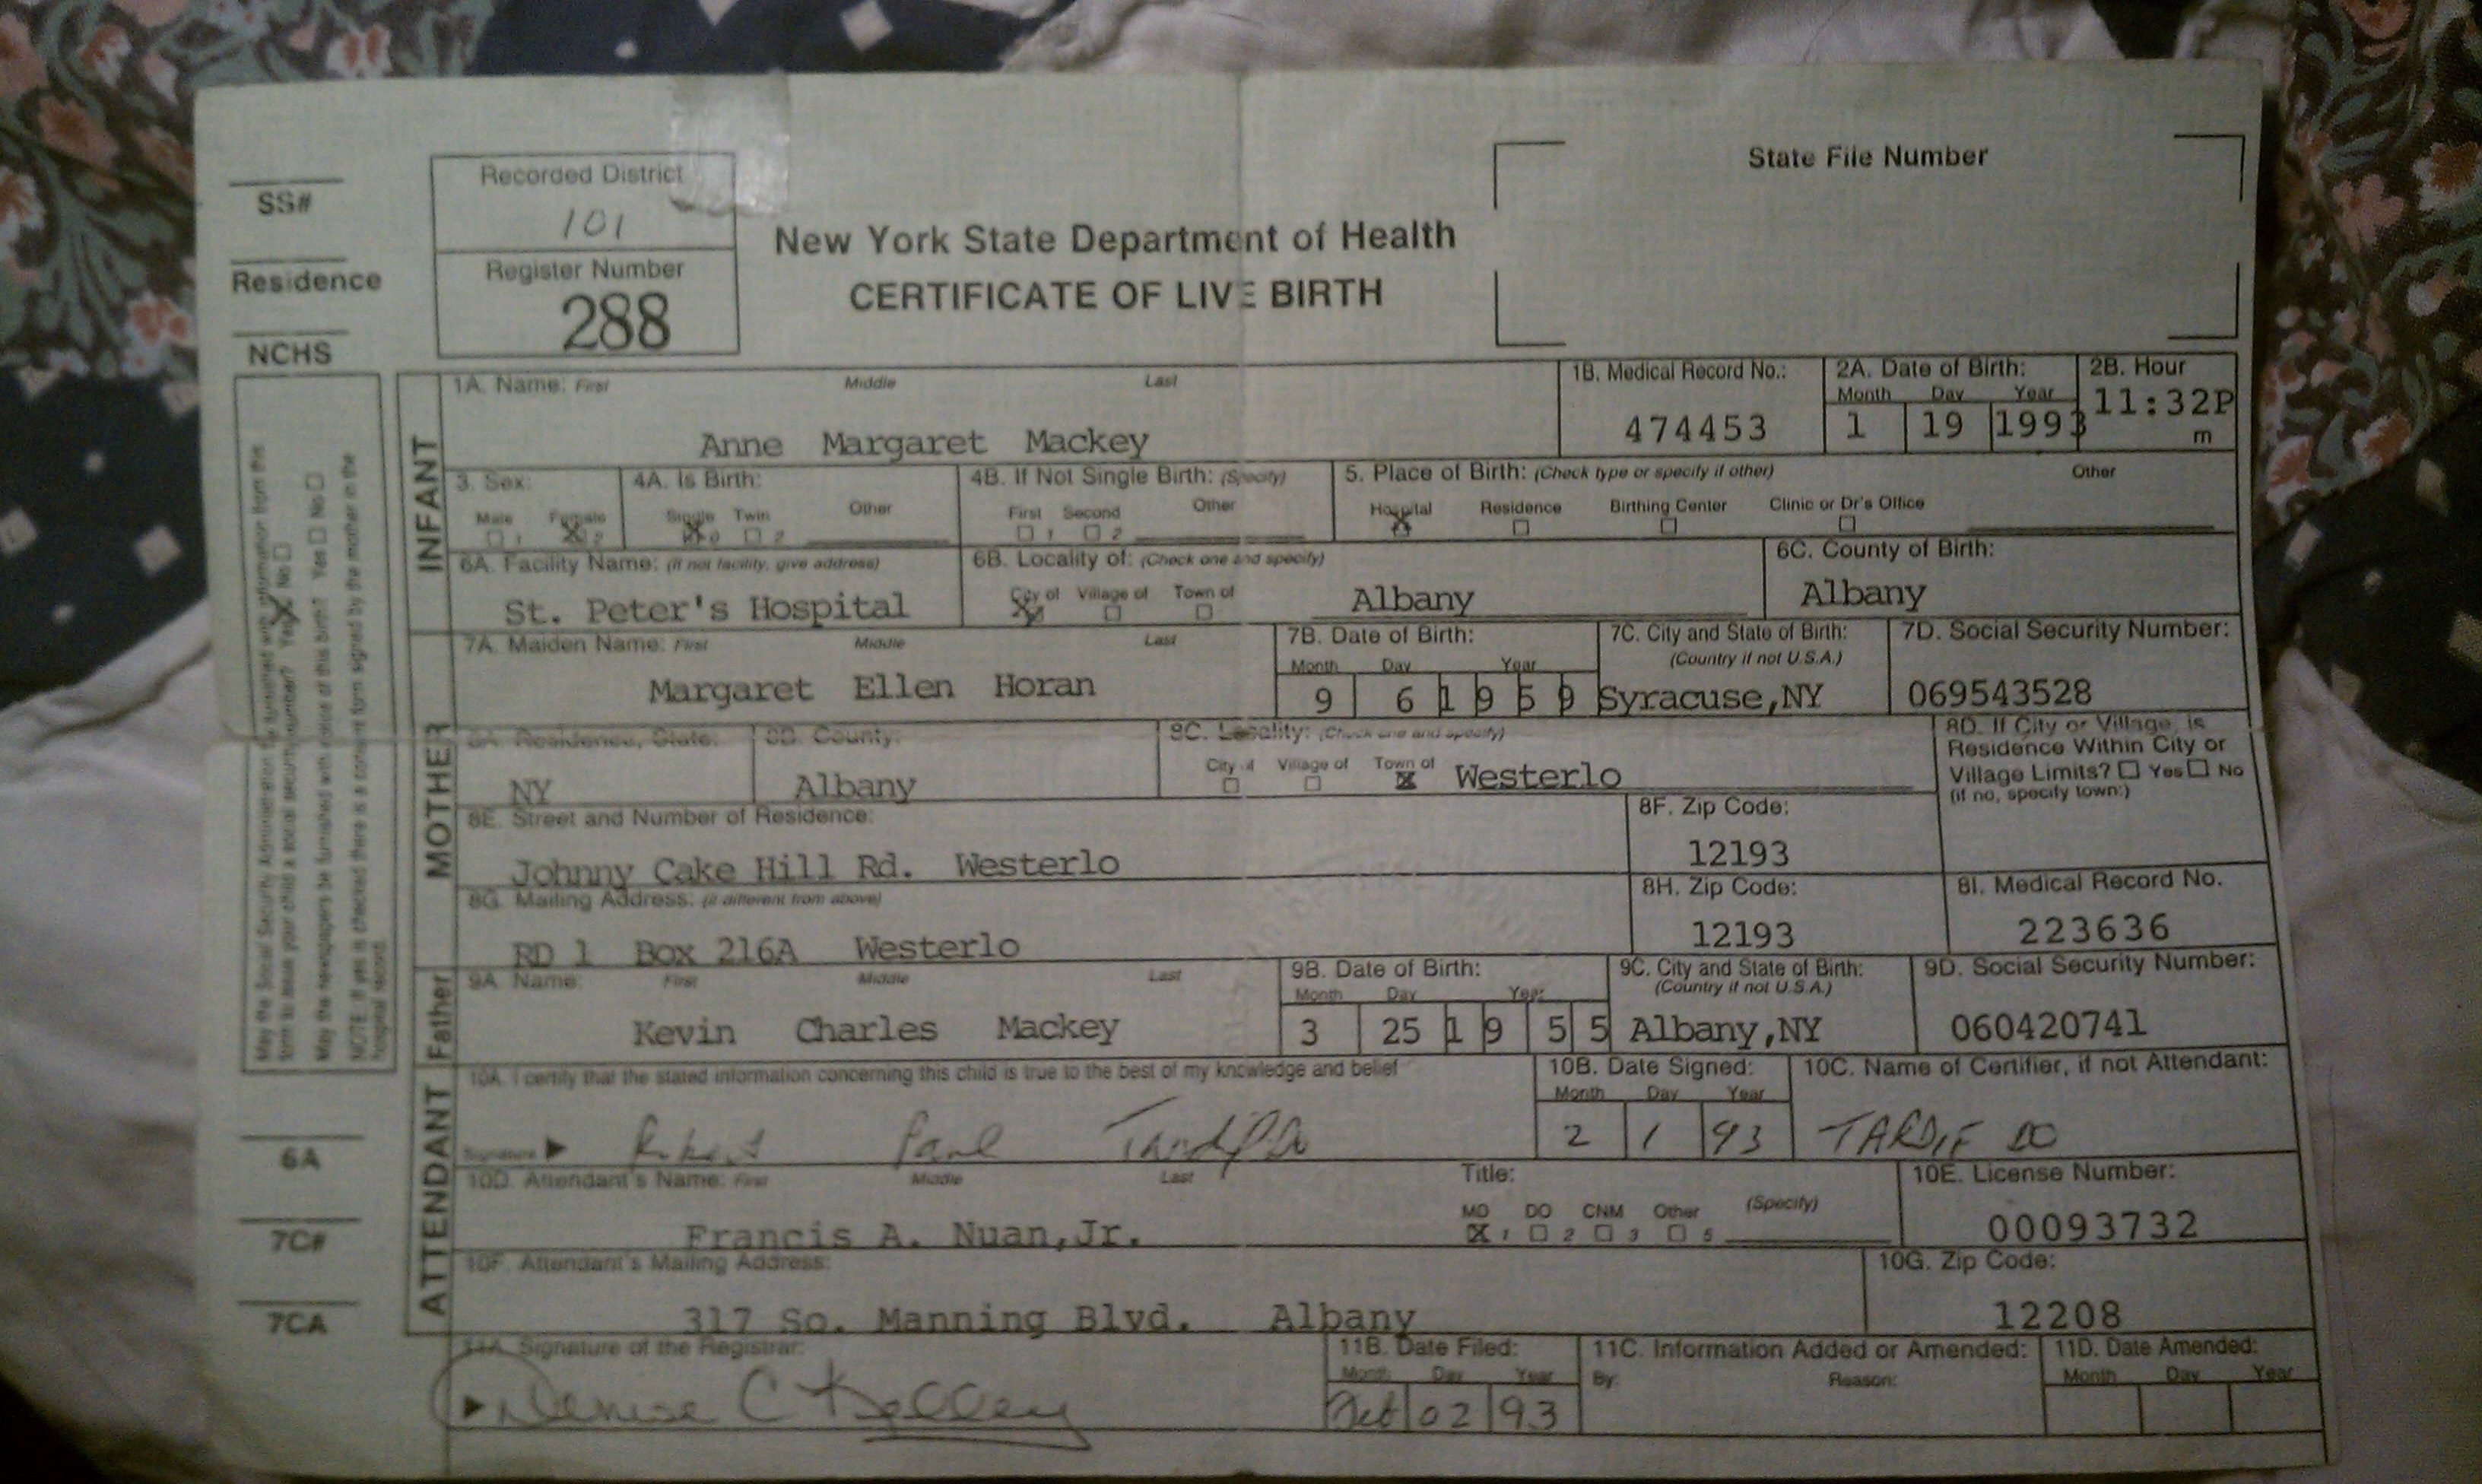 State File Number
SS#
Recorded District
101
New York State Department of Health
Residence
Register Number
288
CERTIFICATE OF LIVE BIRTH
NCHS
INFANT
1A. Name: First Middle Last
Anne Margaret Mackey
1B. Medical Record No.:
474453
2A. Date of Birth:
Month Day Year
1 19 1993
2B. Hour
11:32P
m
3. Sex:
Male 1 Female 2
4A. Is Birth:
Single 0 Twin 2 Other
4B. If Not Single Birth: (Specify)
First 1 Second 2 Other
5. Place of Birth: (Check type or specify if other)
Hospital Residence Birthing Center Clinic or Dr's Office Other
6A. Facility Name: (If not facility, give address)
St. Peter's Hospital
6B. Locality of: (Check one and specify)
City of Village of Town of
Albany
6C. County of Birth:
Albany
MOTHER
7A. Maiden Name: First Middle Last
Margaret Ellen Horan
7B. Date of Birth:
Month Day Year
9 6 1959
7C. City and State of Birth:
(Country if not U.S.A.)
Syracuse,NY
7D. Social Security Number:
069543528
8A. Residence, State:
NY
8B. County:
Albany
8C. Locality: (Check one and specify)
City of Village of Town of Westerlo
8D. If City or Village, is
Residence Within City or
Village Limits? Yes No
(if no, specify town:)
8E. Street and Number of Residence:
Johnny Cake Hill Rd. Westerlo
8F. Zip Code:
12193
8G. Mailing Address: (if different from above)
RD 1 Box 216A Westerlo
8H. Zip Code:
12193
8I. Medical Record No.
223636
Father
9A. Name: First Middle Last
Kevin Charles Mackey
9B. Date of Birth:
Month Day Year
3 25 1955
9C. City and State of Birth:
(Country if not U.S.A.)
Albany,NY
9D. Social Security Number:
060420741
ATTENDANT
10A. I certify that the stated information concerning this child is true to the best of my knowledge and belief
Signature Robert Paul
10B. Date Signed:
Month Day Year
2 1 93
10C. Name of Certifier, if not Attendant:
TARDIF DO
10D. Attendant's Name: First Middle Last
Francis A. Nuan,Jr.
Title:
MD 1 DO 2 CNM 3 Other 5 (Specify)
10E. License Number:
00093732
10F. Attendant's Mailing Address:
317 So. Manning Blvd. Albany
10G. Zip Code:
12208
11A. Signature of the Registrar:
Denise C Kelley
11B. Date Filed:
Month Day Year
Feb 02 93
11C. Information Added or Amended:
By: Reason:
11D. Date Amended:
Month Day Year
May the Social Security Administration be furnished with information from this
form to issue your child a social security number? Yes No
May the newspapers be furnished with notice of this birth? Yes No
NOTE: If yes is checked there is a consent form signed by the mother in the
hospital record.
6A
7C#
7CA